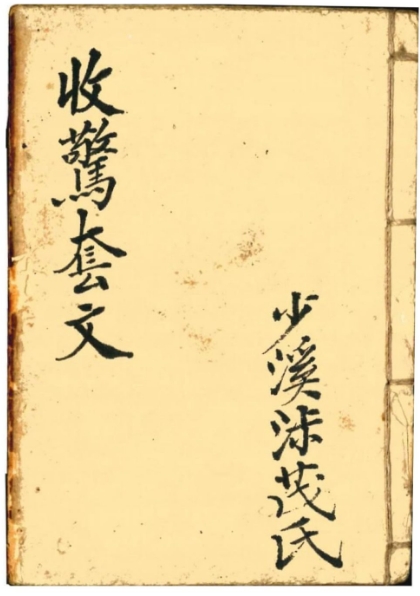 少溪茂氏
收驚套文